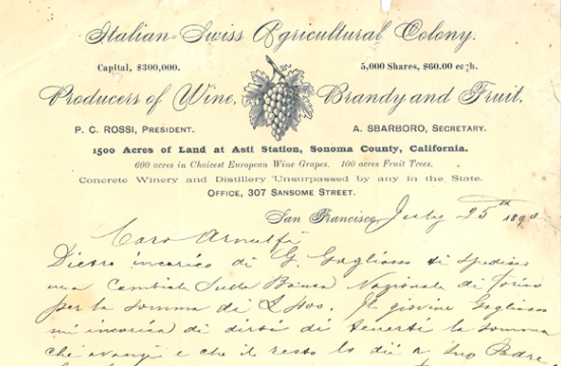 Italian-Swiss Agricultural Colony.
Capital, $300,000. 5,000 Shares, $60.00 each.
Producers of Wine, Brandy and Fruit.
P. C. ROSSI, PRESIDENT. A. SBARBORO, SECRETARY.
1500 Acres of Land at Asti Station, Sonoma County, California.
600 acres in Choicest European Wine Grapes. 100 acres Fruit Trees.
Concrete Winery and Distillery Unsurpassed by any in the State.
OFFICE, 307 SANSOME STREET.
San Francisco, July 25th 189
Caro Arnulfi
Dietro incarico di G. Gagliasso ti spedisco
una Cambiale Sulla Banca Nazionale di Torino
per la somma di 400. Il giovine Gagliasso
mi incarica di dirti di tenerti la somma
che avanzi e che il resto lo dia a suo Padre